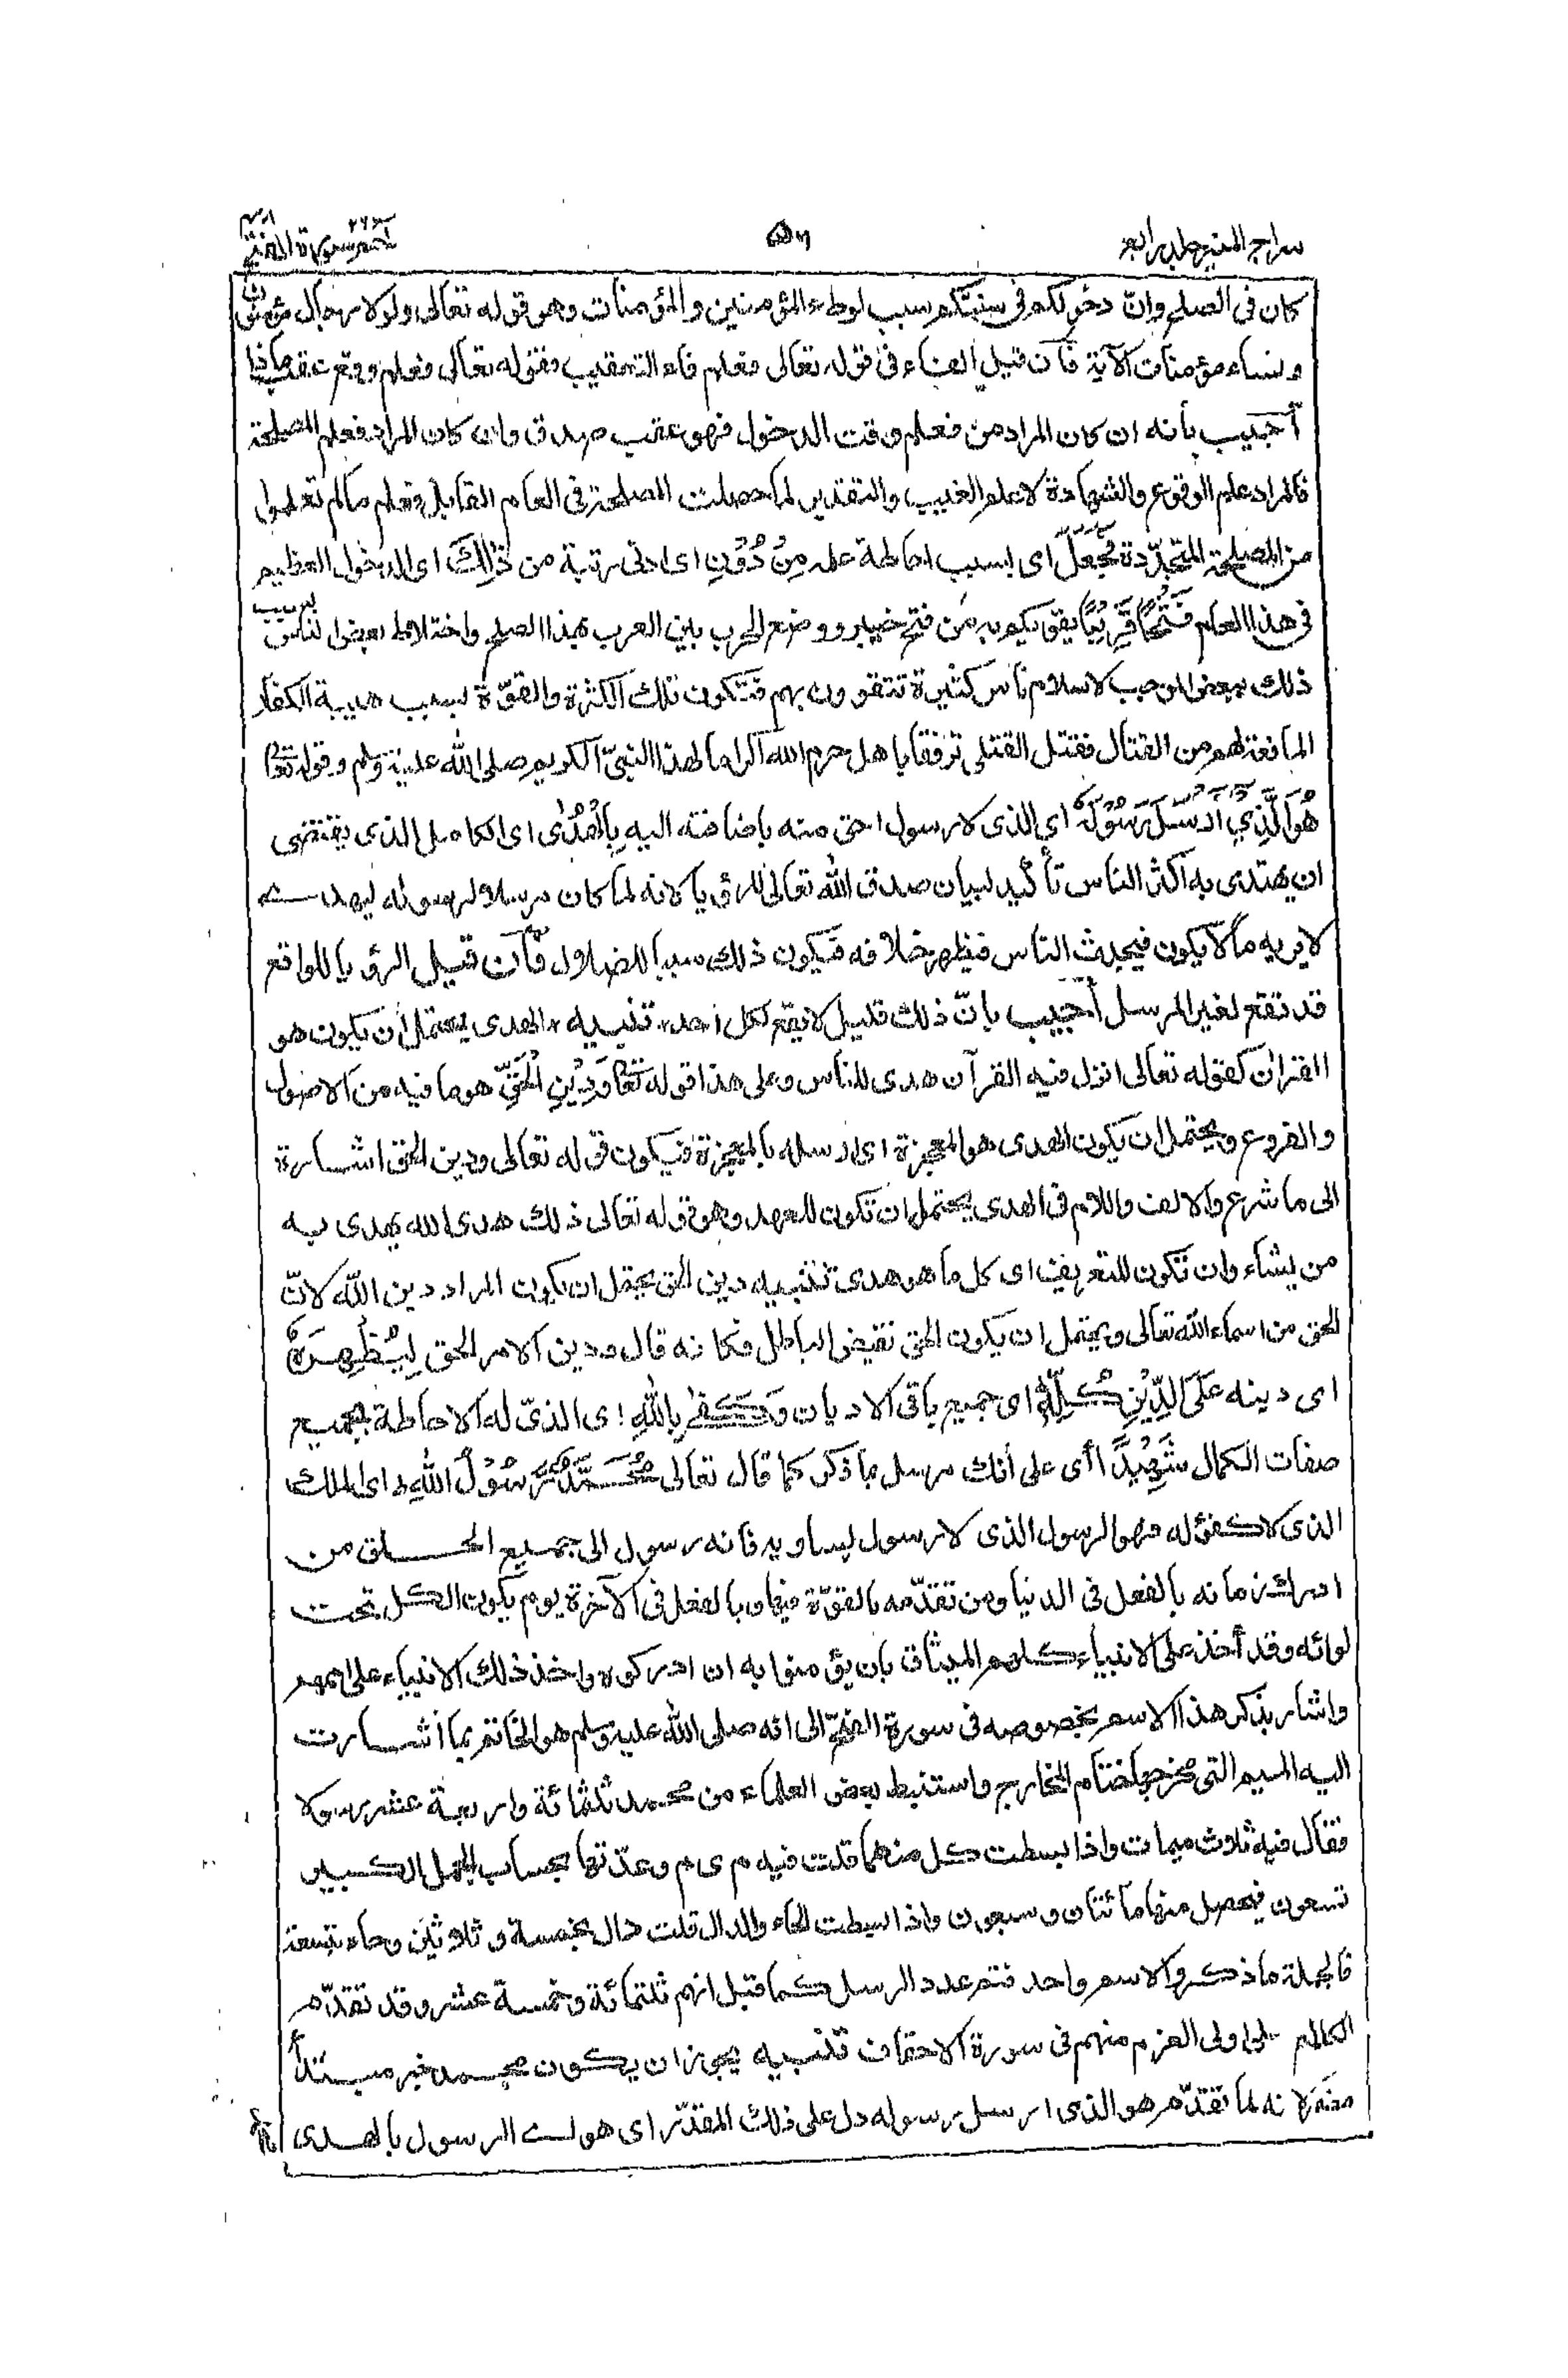 سراج المنير جلد رابع
٥٦
سورة الفتح
كان فى الصلح وانّ دخولكم فى سنتكم سبب لوطء المؤمنين والمؤمنات وهو قوله تعالى ولولا رجال مؤمنون
ونساء مؤمنات الآية فان قيل الفاء فى قوله تعالى فعلم فاء التعقيب فقوله تعالى فعلم وقع عقب ماذا
أجيب بأنه ان كان المراد من فعلم وقت الدخول فهو عقب صدق وان كان المراد فعلم المصلحة
فالمراد علم الوقوع والشهادة لا علم الغيب والتقدير لما حصلت المصلحة فى العام القابل فعلم مالم تعلموا
من المصلحة المتجدّدة فَجَعَلَ اى بسبب احاطة علمه مِنْ دُوْنِ اى ادنى رتبة من ذٰلِكَ اى الدخول العظيم
فى هذا العام فَتْحًا قَرِيْبًا يقوّيكم به من فتح خيبر ووضع الحرب بين العرب بهذا الصلح واختلاط بعض الناس بسبب
ذلك ببعض الموجب لاسلام ناس كثيرة تتقوون بهم فتكون تلك الكثرة والقوّة بسبب هيبة الكفار
المانعة لهم من القتال فتقتل القتلى ترفقا باهل حرم الله اكراما لهذا النبىّ الكريم صلى الله عليه وسلم وقوله تعالى
هُوَ الَّذِيْ اَرْسَلَ رَسُوْلَهٗ اى الذى لا رسول احق منه باضافته اليه بِالْهُدٰى اى الكامل الذى يقتضى
ان يهتدى به اكثر الناس تأكيد لبيان صدق الله تعالى للرؤيا لانه لما كان مرسلا لرسوله ليهدى
لا يريه مالا يكون فيحدث الناس فيظهر خلافه فيكون ذلك سببا للضلال فان قيل الرؤيا للواقع
قد تقع لغير المرسل أجيب بانّ ذلك قليل لا يقع لكل احد تنبيه الهدى يحتمل ان يكون هو
القران كقوله تعالى انزل فيه القرآن هدى للناس وعلى هذا قوله تعالى وَدِيْنِ الْحَقِّ هو ما فيه من الاصول
والفروع ويحتمل ان يكون الهدى هو المعجزة اى ارسله بالمعجزة فيكون قوله تعالى ودين الحق اشارة
الى ما شرع والالف واللام فى الهدى يحتمل ان تكون للعهد وهو قوله تعالى ذلك هدى الله يهدى به
من يشاء وان تكون للتعريف اى كل ما هو هدى تنبيه دين الحق يحتمل ان يكون المراد دين الله لانّ
الحق من اسماء الله تعالى ويحتمل ان يكون الحق نقيض الباطل فكانه قال ودين الامر الحق لِيُظْهِرَهٗ
اى دينه عَلَى الدِّيْنِ كُلِّهٖ اى جميع باقى الاديان وَكَفٰى بِاللّٰهِ اى الذى له الاحاطة بجميع
صفات الكمال شَهِيْدًا أى على أنك مرسل بما ذكر كما قال تعالى مُحَمَّدٌ رَّسُوْلُ اللهِ اى الملك
الذى لا كفؤ له فهو الرسول الذى لا رسول يساويه فانه رسول الى جميع الخلق من
ادرك زمانه بالفعل فى الدنيا ومن تقدّمه بالقوّة فيها وبالفعل فى الآخرة يوم يكون الكل تحت
لوائه وقد أخذ على الانبياء كلهم الميثاق بان يؤمنوا به ان ادركوه واخذ ذلك الانبياء على اممهم
واشار بذكر هذا الاسم بخصوصه فى سورة الفتح الى انه صلى الله عليه وسلم هو الخاتم بما اشارت
اليه الميم التى مخرجها ختام المخارج واستنبط بعض العلماء من محمد ثلثمائة واربعة عشر رسولا
فقال فيه ثلاث ميمات واذا بسطت كل منهما قلت فيه م ى م وعدّتها بحساب الجمل الكبير
تسعون فيحصل منها مائتان وسبعون واذا بسطت الحاء والدال قلت دال بخمسة وثلاثين وحاء بتسعة
فالجملة ما ذكر والاسم واحد فتم عدد الرسل كما قيل انهم ثلثمائة وخمسة عشر وقد تقدّم
الكلام على اولى العزم منهم فى سورة الاحقاف تنبيه يجوز ان يكون محمد خبر مبتدأ
مضمر لانه لما تقدّم هو الذى ارسل رسوله دل على ذلك المقدّر اى هو اى الرسول بالهدى